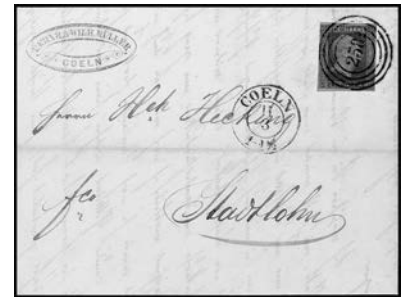 MÜLLER,
COELN
250
COELN
11
3
Herrn Hch Hecking
fco
Stadtlohn